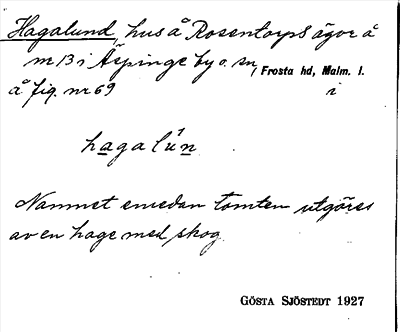 Hagalund, hus å Rosentorps ägor å
nr 13 i Äspinge by o. sn, Frosta hd, Malm. l.
å fig. nr 69 i
hagalún
Namnet emedan tomten utgöres
av en hage med skog.
GÖSTA SJÖSTEDT 1927